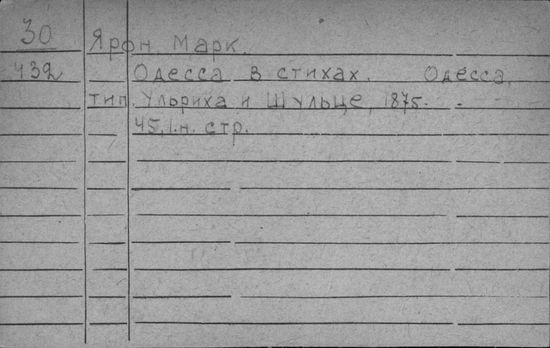 30 Ярон, Марк.
432 Одесса в стихах. Одесса,
тип. Ульриха и Шульце, 1875.
45, 1.н. стр.